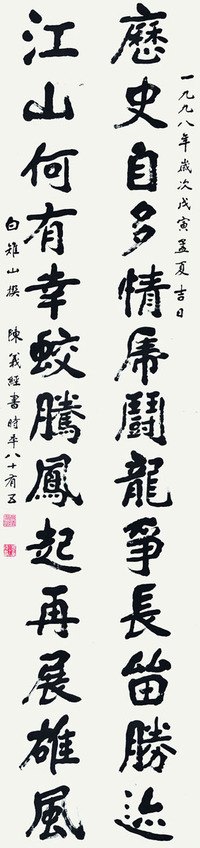 一九九八年歲次戊寅孟夏吉日
歷史自多情虎鬪龍爭長留勝迹
江山何有幸蛟騰鳳起再展雄風
白雉山撰 陳義經書時年八十有五